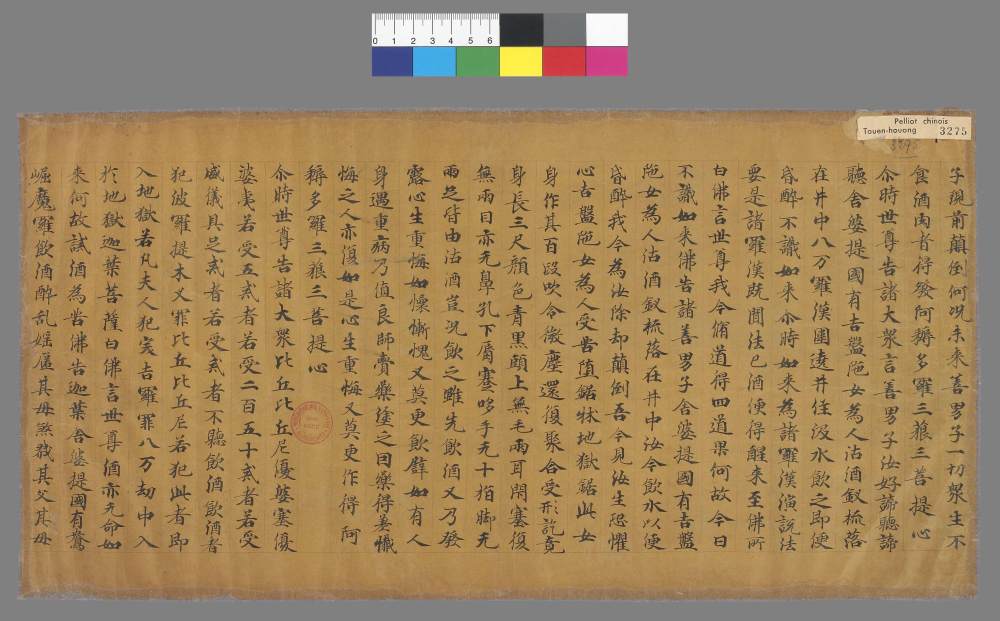 子現前顛倒何況未來善男子一切衆生不
食酒肉者得發阿耨多羅三藐三菩提心
尒時世尊告諸大衆言善男子汝好諦聽諦
聽舍婆提國有吉䀋陁女為人沽酒釵梳落
在井中八万羅漢圍遶井住汲水飲之即便
昏醉不識如来尒時如来為諸羅漢演說法
要是諸羅漢既聞法已酒便得醒来至佛所
白佛言世尊我今脩道得四道果何故今日
不識如来佛告諸善男子舍婆提國有吉䀋
陁女為人沽酒釵梳落在井中汝今飲水以便
昏醉我今為汝除却顛倒吾今見汝生恐懼
心吉䀋陁女為人受苦墮鋸狱地獄鋸此女
身作其百段吹令微塵還復聚合受形訖竟
身長三尺顔色青黑頭上無毛兩耳閇塞復
無兩目亦无鼻孔下脣蹇哆手无十指脚无
兩足皆由沽酒豈況飲之雖先飲酒又乃發
露心生重悔如懷慚愧又莫更飲辟如有人
身遇重病乃值良師賣藥塗之因藥得差懺
悔之人亦復如是心生重悔又莫更作得阿
耨多羅三藐三菩提心
尒時世尊告諸大衆比丘比丘尼優婆塞優
婆夷若受五戒者若受二百五十戒者若受
威儀具足戒者若受戒者不聽飲酒飲酒者
犯波羅提木叉罪比丘比丘尼若犯此者即
入地獄若凡夫人犯突吉羅罪八万劫中入
於地獄迦葉菩薩白佛言世尊酒亦无命如
来何故試酒為苦佛告迦葉舍婆提國有鴦
崛魔羅飲酒醉乱婬匿其母煞戮其父其母
Pelliot chinois
Touen-houang 3275
0 1 2 3 4 5 6